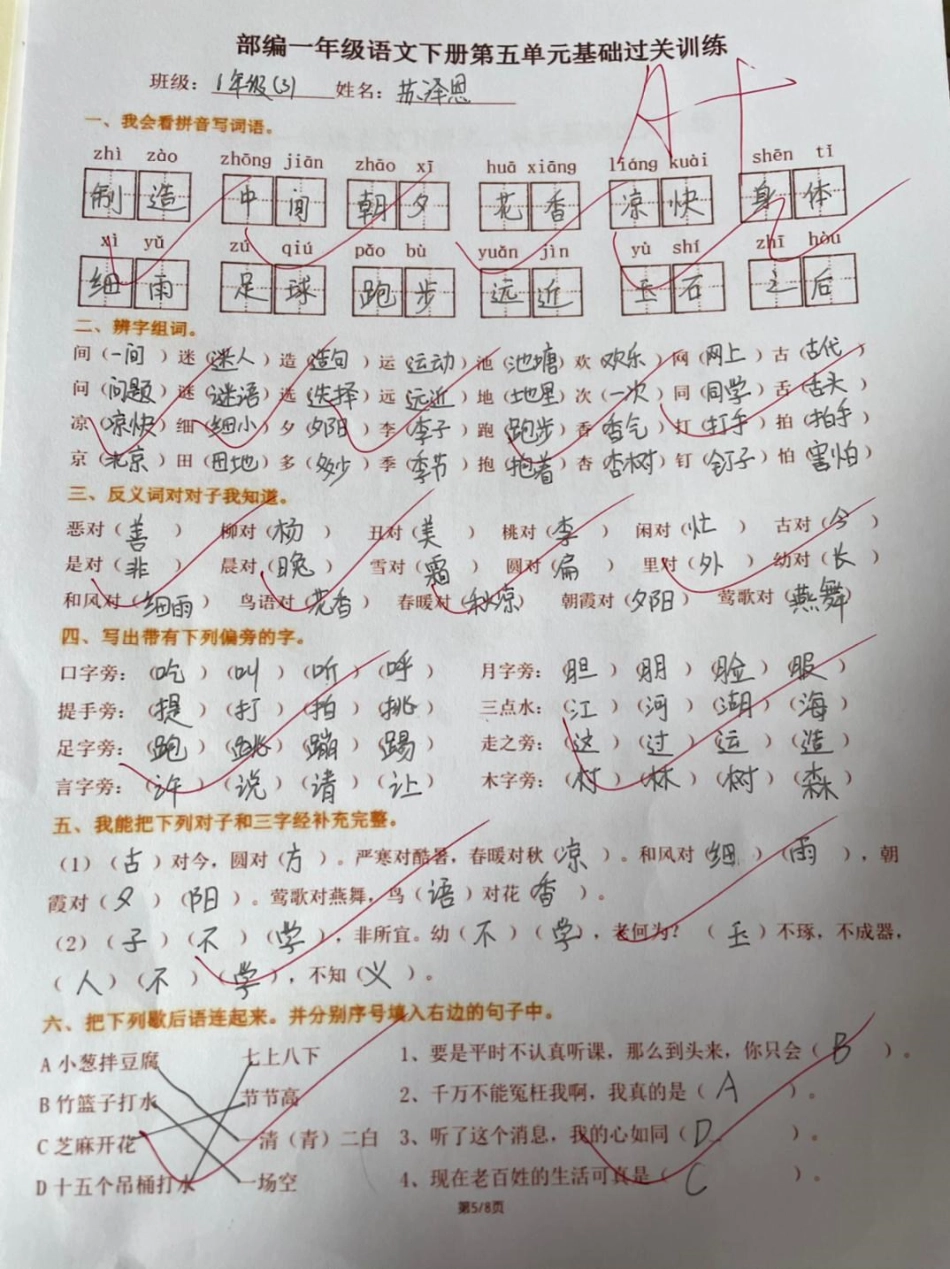 部编一年级语文下册第五单元基础过关训练
班级：1年级(3) 姓名：苏泽恩
A+
一、我会看拼音写词语。
zhì zào zhōng jiān zhāo xī huā xiāng liáng kuài shēn tǐ
制造 中间 朝夕 花香 凉快 身体
xì yǔ zú qiú pǎo bù yuǎn jìn yù shí zhī hòu
细雨 足球 跑步 远近 玉石 之后
二、辨字组词。
间（一间）迷（迷人）造（造句）运（运动）池（池塘）欢（欢乐）网（网上）古（古代）
问（问题）谜（谜语）选（选择）远（远近）地（地里）次（一次）同（同学）舌（舌头）
凉（凉快）细（细小）夕（夕阳）李（李子）跑（跑步）香（香气）打（打手）拍（拍手）
京（北京）田（田地）多（多少）季（季节）抱（抱着）杏（杏树）钉（钉子）怕（害怕）
三、反义词对对子我知道。
恶对（善）柳对（杨）丑对（美）桃对（李）闲对（忙）古对（今）
是对（非）晨对（晚）雪对（霜）圆对（扁）里对（外）幼对（长）
和风对（细雨）鸟语对（花香）春暖对（秋凉）朝霞对（夕阳）莺歌对（燕舞）
四、写出带有下列偏旁的字。
口字旁：（吃）（叫）（听）（呼） 月字旁：（胆）（朋）（脸）（服）
提手旁：（提）（打）（拍）（挑） 三点水：（江）（河）（湖）（海）
足字旁：（跑）（跳）（蹦）（踢） 走之旁：（这）（过）（运）（造）
言字旁：（许）（说）（请）（让） 木字旁：（村）（林）（树）（森）
五、我能把下列对子和三字经补充完整。
（1）（古）对今，圆对（方）。严寒对酷暑，春暖对秋（凉）。和风对（细）（雨），朝
霞对（夕）（阳）。莺歌对燕舞，鸟（语）对花（香）。
（2）（子）（不）（学），非所宜。幼（不）（学），老何为？（玉）不琢，不成器，
（人）（不）（学），不知（义）。
六、把下列歇后语连起来。并分别序号填入右边的句子中。
A 小葱拌豆腐 七上八下 1、要是平时不认真听课，那么到头来，你只会（B）。
B 竹篮子打水 节节高 2、千万不能冤枉我啊，我真的是（A）。
C 芝麻开花 一清（青）二白 3、听了这个消息，我的心如同（D）。
D 十五个吊桶打水 一场空 4、现在老百姓的生活可真是（C）。
第5/8页